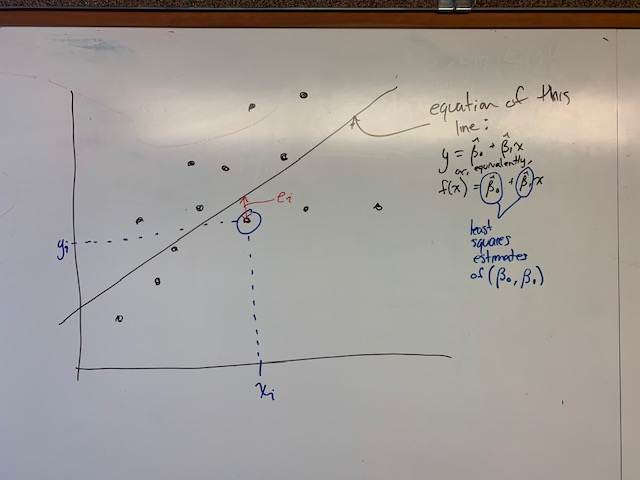 equation of this
line:
y = β̂₀ + β̂₁x
or, equivalently,
f(x) = β̂₀ + β̂₁x
eᵢ
yᵢ
least
squares
estimates
of (β₀, β₁)
xᵢ